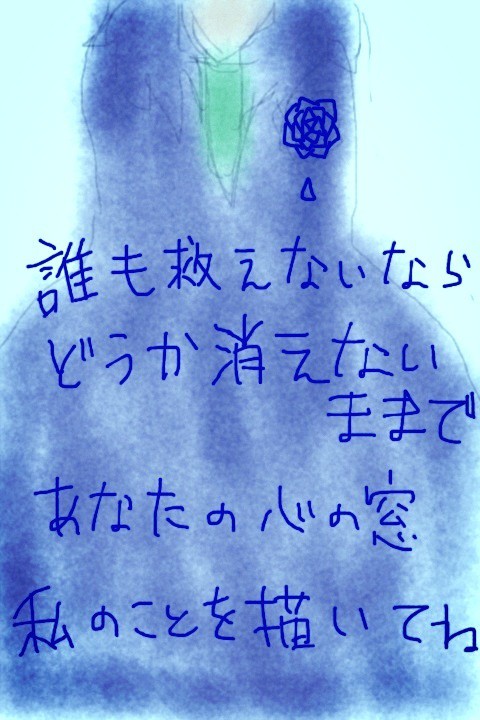 誰も救えないなら
どうか消えない
ままで
あなたの心の窓
私のことを描いてね